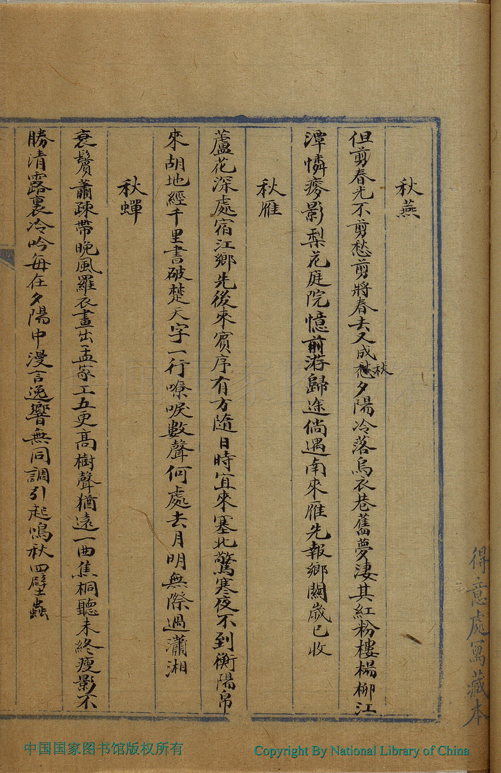 秋燕
但剪春光不剪愁剪將春去又成秋夕陽冷落烏衣巷舊夢淒其紅粉樓楊柳江
潭憐瘦影梨花庭院憶前游歸途倘遇南來雁先報鄉關歲已收
秋雁
蘆花深處宿江鄉先後來賓序有方隨日時宜來塞北驚寒夜不到衡陽帛
來胡地經千里書破楚天字一行嘹唳數聲何處去月明無際過瀟湘
秋蟬
衰鬢蕭疎帶晚風羅衣畫出孟家工五更高樹聲猶遠一曲焦桐聽未終瘦影不
勝清露裏冷吟每在夕陽中漫言逸響無同調引起鳴秋四壁蟲
得意處寫藏本
中国国家图书馆版权所有
Copyright By National Library of China